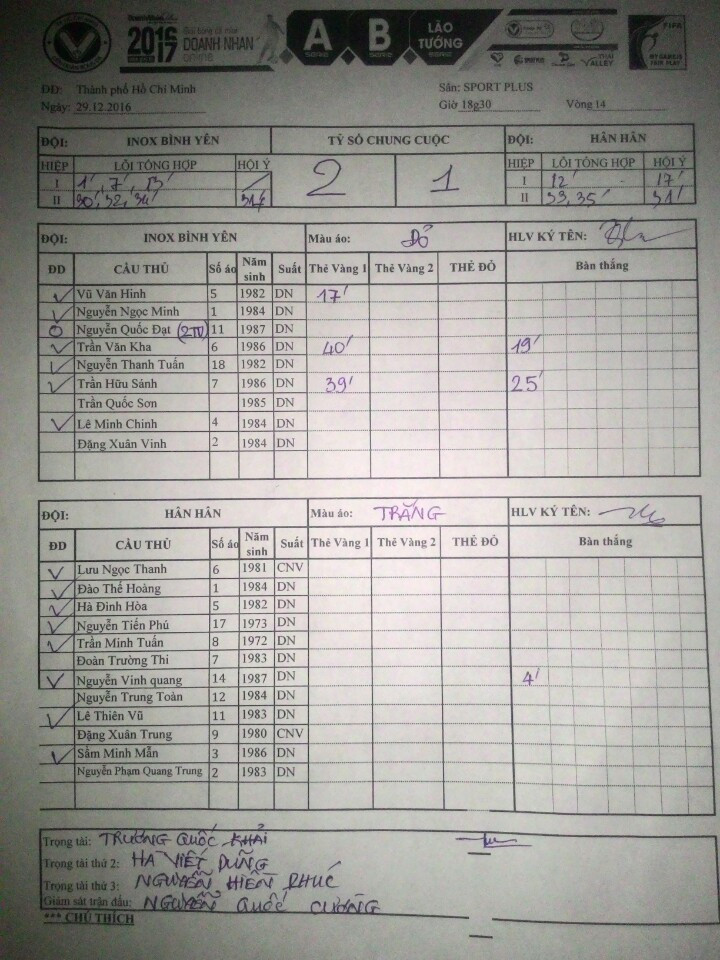 2016 2017
DOANH NHÂN
online
A
SERIE
B
SERIE
LÃO
TƯỚNG
FIFA
MY GAME IS
FAIR PLAY
ĐD: Thành phố Hồ Chí Minh Sân: SPORT PLUS
Ngày: 29.12.2016 Giờ 18g30 Vòng 14
ĐỘI: INOX BÌNH YÊN TỶ SỐ CHUNG CUỘC ĐỘI: HÂN HÂN
HIỆP LỖI TỔNG HỢP HỘI Ý 2 1 HIỆP LỖI TỔNG HỢP HỘI Ý
I 1', 7', 13' I 12' 17'
II 30', 32, 34' II 33, 35' 31'
ĐỘI: INOX BÌNH YÊN Màu áo: ĐỎ HLV KÝ TÊN:
ĐD CẦU THỦ Số áo Năm sinh Suất Thẻ Vàng 1 Thẻ Vàng 2 THẺ ĐỎ Bàn thắng
Vũ Văn Hinh 5 1982 DN 17'
Nguyễn Ngọc Minh 1 1984 DN
Nguyễn Quốc Đạt 11 1987 DN
Trần Văn Kha 6 1986 DN 40' 19'
Nguyễn Thanh Tuấn 18 1982 DN
Trần Hữu Sánh 7 1986 DN 39' 25'
Trần Quốc Sơn 1985 DN
Lê Minh Chinh 4 1984 DN
Đặng Xuân Vinh 2 1984 DN
ĐỘI: HÂN HÂN Màu áo: TRẮNG HLV KÝ TÊN:
ĐD CẦU THỦ Số áo Năm sinh Suất Thẻ Vàng 1 Thẻ Vàng 2 THẺ ĐỎ Bàn thắng
Lưu Ngọc Thanh 6 1981 CNV
Đào Thế Hoàng 1 1984 DN
Hà Đình Hòa 5 1982 DN
Nguyễn Tiến Phú 17 1973 DN
Trần Minh Tuấn 8 1972 DN
Đoàn Trường Thi 7 1983 DN
Nguyễn Vinh quang 14 1987 DN 4'
Nguyễn Trung Toàn 12 1984 DN
Lê Thiên Vũ 11 1983 DN
Đặng Xuân Trung 9 1980 CNV
Sầm Minh Mẫn 3 1986 DN
Nguyễn Phạm Quang Trung 2 1983 DN
Trọng tài: TRƯƠNG QUỐC KHẢI
Trọng tài thứ 2: HÀ VIẾT DŨNG
Trọng tài thứ 3: NGUYỄN HIỀN PHÚC
Giám sát trận đấu: NGUYỄN QUỐC CƯỜNG
*** CHÚ THÍCH